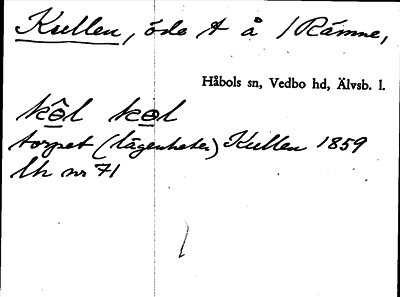 Kullen, öde t å /Rämne,
Håbols sn, Vedbo hd, Älvsb. l.
torpet (lägenheten) Kullen 1859
lk nr 71